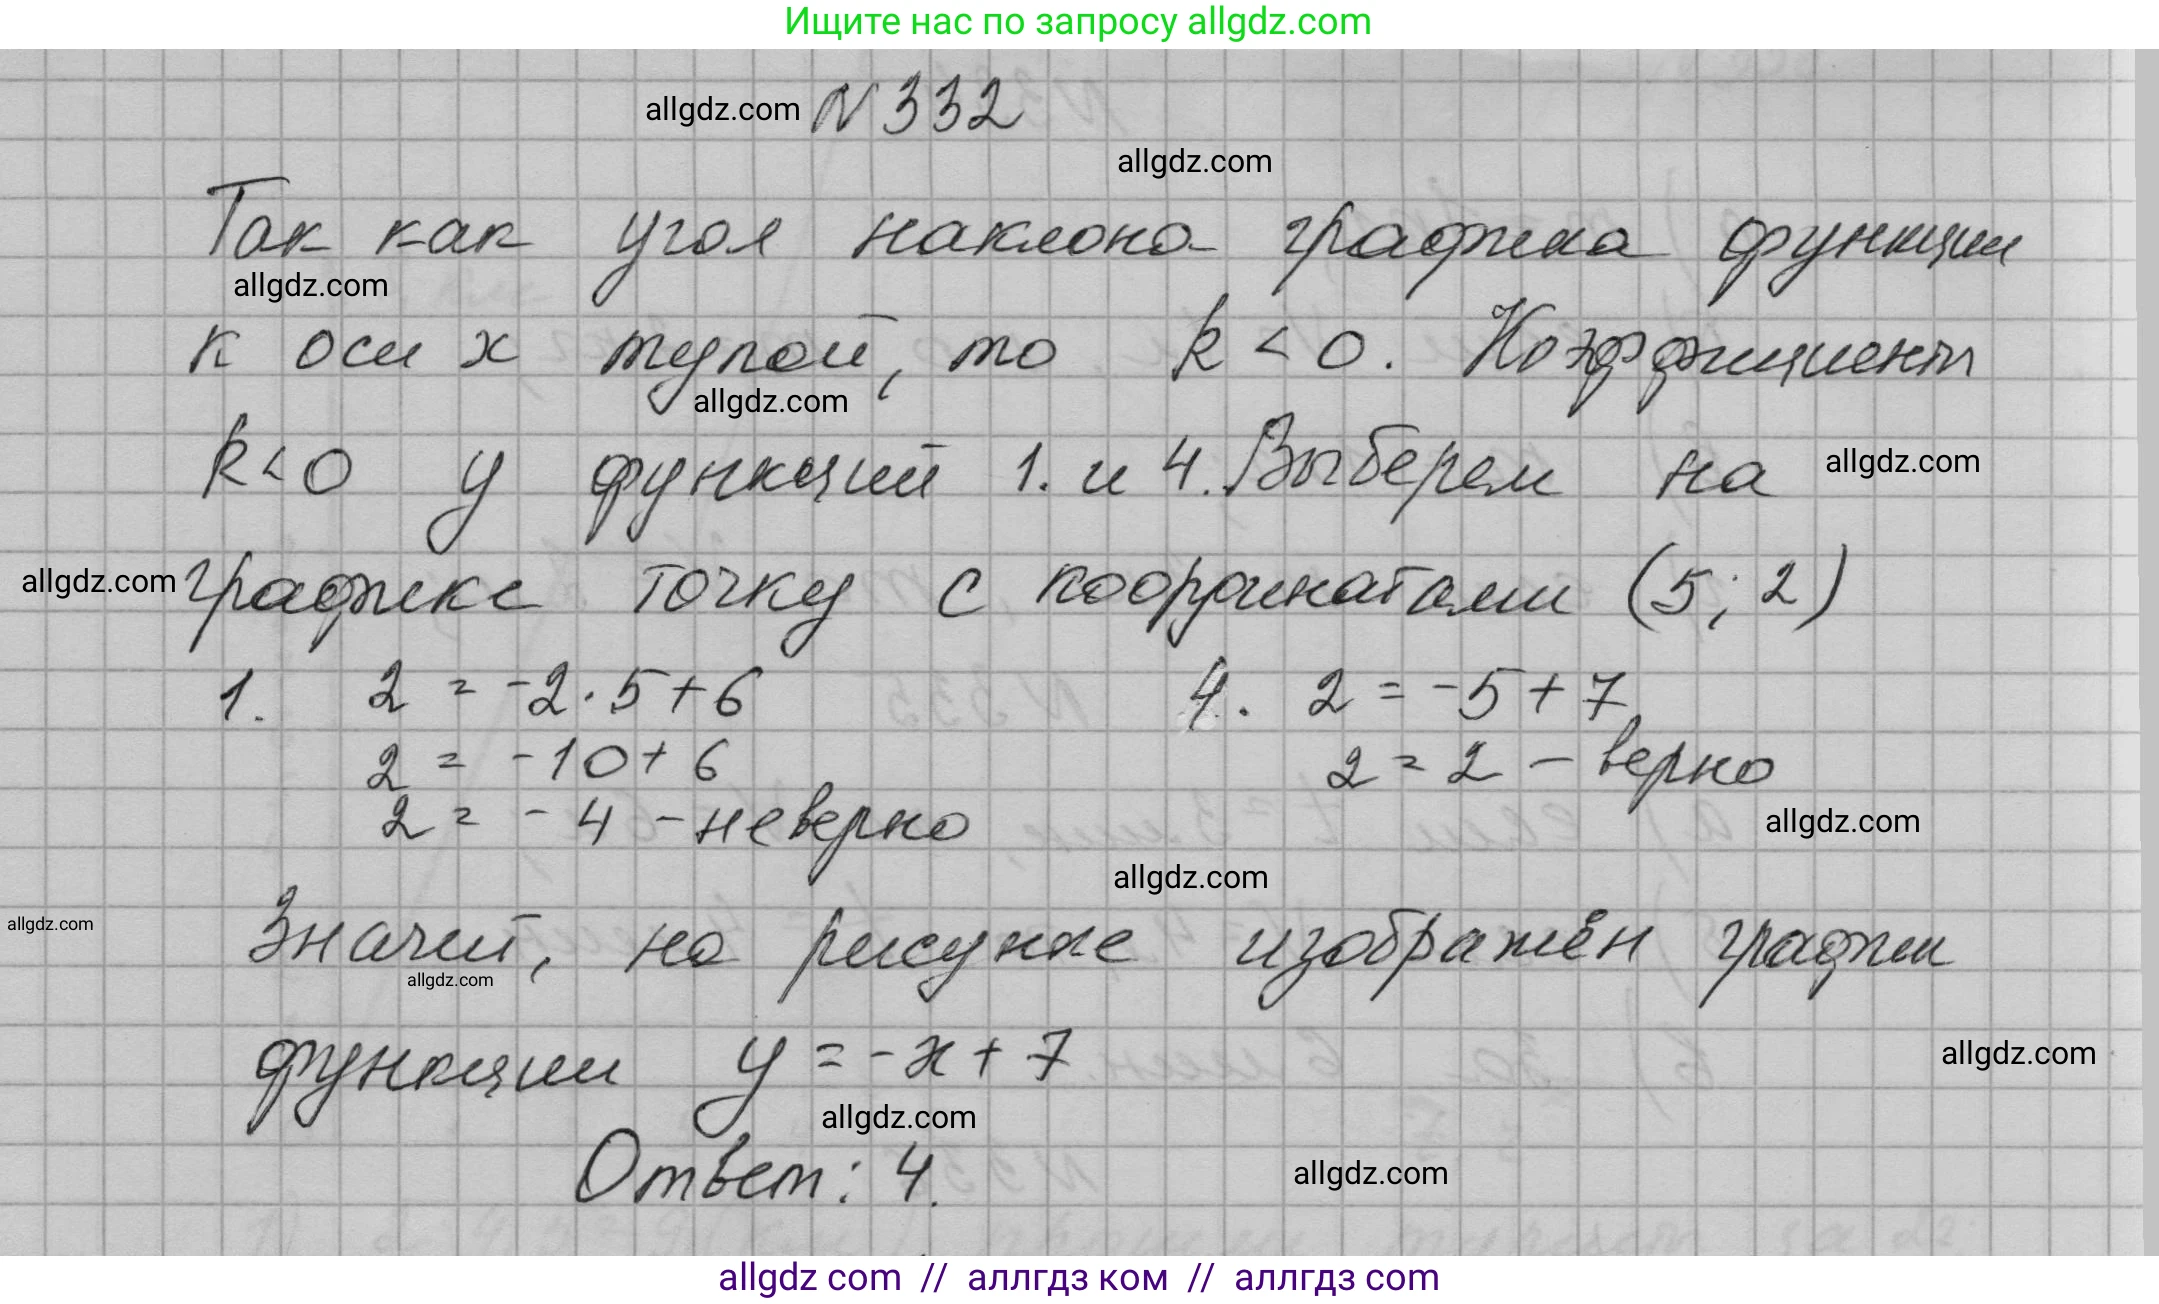 Ищите нас по запросу allgdz.com
allgdz.com N 332
allgdz.com
Так как угол наклона графика функции
allgdz.com
к оси x тупой, то k < 0. Коэффициент
allgdz.com
k < 0 у функций 1. и 4. Выберем на allgdz.com
allgdz.com графике точку с координатами (5; 2)
1. 2 = -2 · 5 + 6 4. 2 = -5 + 7
2 = -10 + 6 2 = 2 - верно
2 = -4 - неверно allgdz.com
allgdz.com
allgdz.com Значит, на рисунке изображён график
allgdz.com
функции y = -x + 7 allgdz.com
allgdz.com
Ответ: 4. allgdz.com
allgdz com // аллгдз ком // аллгдз com